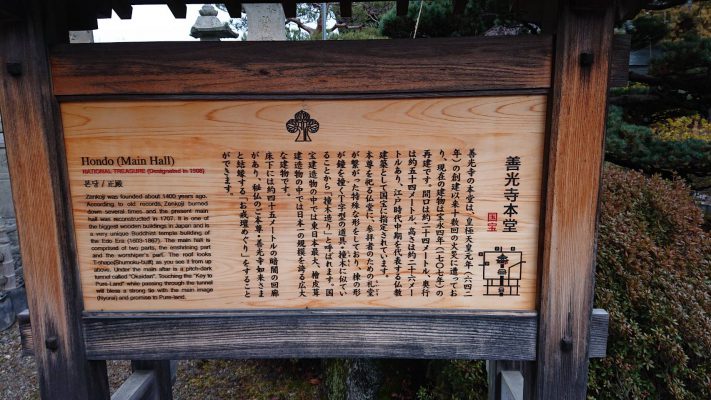 善光寺本堂
国宝
善光寺の本堂は、皇極天皇元年(六四二
年)の創建以来十数回の大災に遭ってお
り、現在の建物は宝永四年(一七〇七年)の
再建です。間口は約二十四メートル、奥行
は約五十四メートル、高さは約二十六メー
トルあり、江戸時代中期を代表する仏教
建築として国宝に指定されています。
本尊を祀る仏堂に、参拝者のための礼堂
が繋がった特殊な形をしており、棟の形
が鐘を撞くT字型の道具・撞木に似てい
ることから「撞木造り」と呼ばれます。国
宝建造物の中では東日本最大、檜皮葺
建造物の中では日本一の規模を誇る広大
な建物です。
床下には約四十五メートルの暗闇の回廊
があり、秘仏のご本尊・善光寺如来さま
と結縁する「お戒壇めぐり」をすること
ができます。
Hondo (Main Hall)
NATIONAL TREASURE (Designated in 1908)
본당 / 正殿
Zenkoji was founded about 1400 years ago.
According to old records Zenkoji burned
down several times and the present main
hall was reconstructed in 1707. It is one of
the biggest wooden buildings in Japan and is
a very unique Buddhist temple building of
the Edo Era (1603-1867). The main hall is
comprised of two parts, the enshrining part
and the worshiper's part. The roof looks
T-shape(Shumoku-built) as you see it from up
above. Under the main altar is a pitch-dark
tunnel called "Okaidan". Touching the "Key to
Pure-Land" while passing through the tunnel
will bless a strong tie with the main image
(Nyorai) and promise to Pure-land.